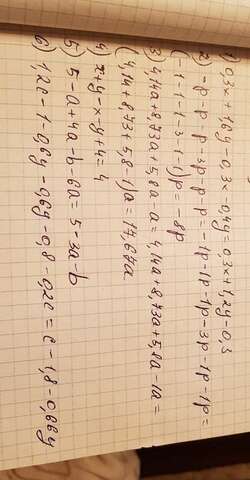 1) 0,3x+1,6y-0,3x-0,4y=0,3x+1,2y-0,3
2) -p-p-p-3p-p-p=-1p-1p-1p-3p-1p-1p=
(-1-1-1-3-1-1)p=-8p
3) 4,14a+8,73a+5,8a-a=4,14a+8,73a+5,8a-1a=
(4,14+8,73+5,8-1)a=17,67a.
4) x+y-x-y+4=4
5) 5-a+4a-b-6a=5-3a-b
6) 1,2c-1-0,66y-0,8-0,2c=c-1,8-0,66y